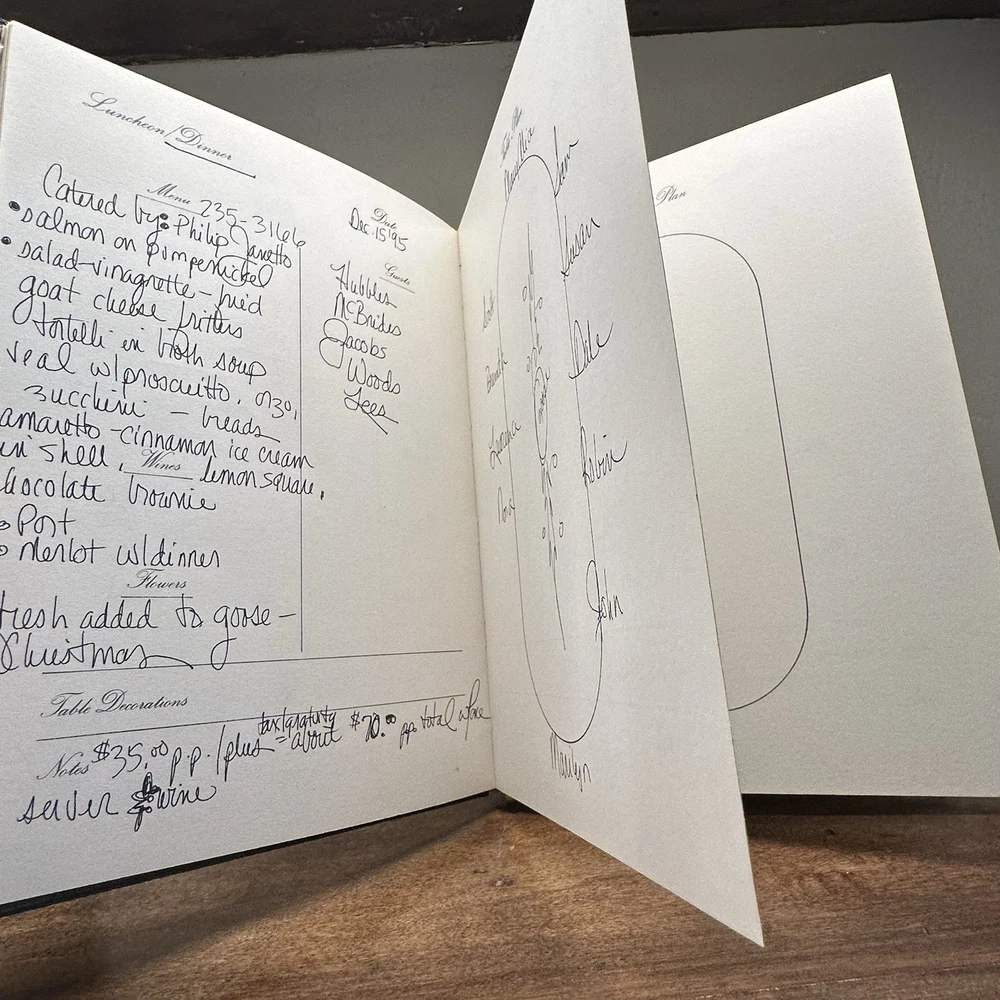 Luncheon/Dinner
Menu 235-3166
Catered by: Philip Janetto
• salmon on pumpernickel
• salad-vinagrette-fried
goat cheese fritters
tortelli in broth soup
veal w/proscuitto, orzo,
zucchini - breads
amaretto-cinnamon ice cream
in shell, lemon square,
Wines
chocolate brownie
Port
Merlot w/dinner
Flowers
fresh added to goose -
Christmas
Table Decorations
Notes $35.00 p.p./plus tax/gratuity = about $70.00 pp total w/
server & wine
Date
Dec. 15 '95
Guests
Hubbles
McBrides
Jacobs
Woods
Lees
Table Plan
Sam
Susan
Dale
Robin
John
Marilyn
Plan